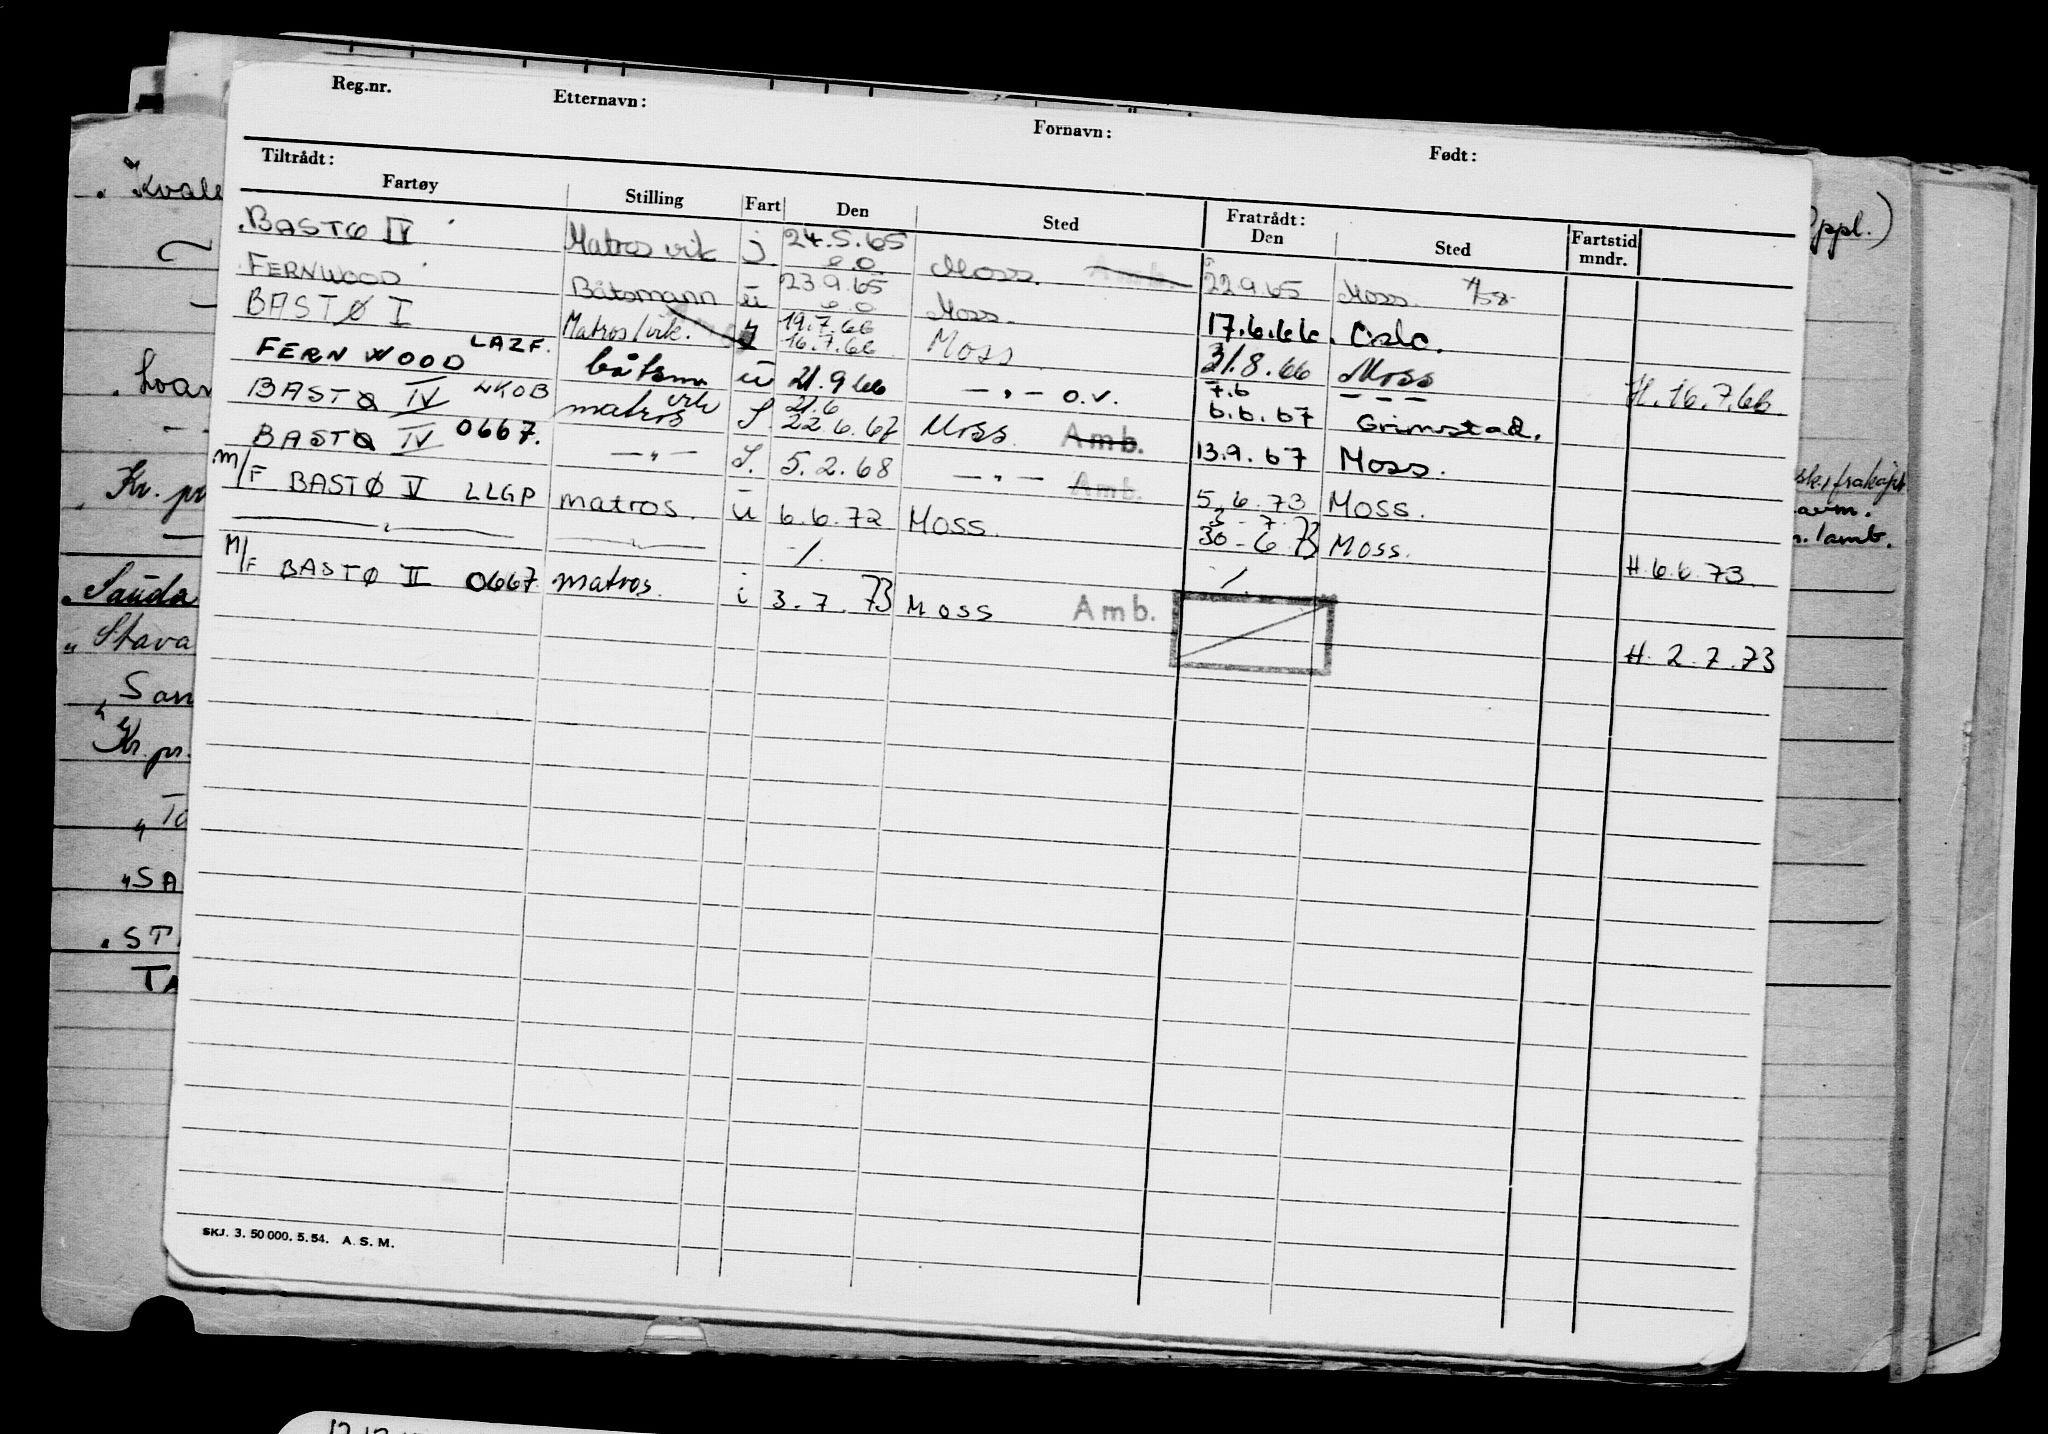 Reg.nr. Etternavn: Fornavn: Født:
Tiltrådt: Fratrådt:
Fartøy Stilling Fart Den Sted Den Sted Fartstid mndr.
BASTØ IV Matros vik j. 24.5.65 Moss. Amb. 22.9.65 Moss.
FERNWOOD Båtsmann u 23.9.65 Moss. 17.6.66. Oslo.
BASTØ I Matros/vik. 19.7.66 16.7.66 Moss 31.8.66 Moss H. 16.7.66
FERNWOOD LAZF. båtsm u 21.9.66 — " — o.v. 7.6 6.6.67 Grimstad.
BASTØ IV LKOB matros vik S. 21.6 22.6.67 Moss. Amb. 13.9.67 Moss.
BASTØ IV 0667. — " — S. 5.2.68 — " — Amb.
M/F BASTØ V LLGP matros. u 6.6.72 Moss. 5.6.73 Moss.
— " — 3-7-73 30-6-73 Moss. H. 6.6.73
M/F BASTØ II 0667 matros. i 3.7.73 Moss Amb.
H. 2.7.73
SKJ. 3. 50 000. 5. 54. A. S. M.
Kvale
Kr. pr
Sauda
Stava
San
Kr. pr.
To
"SA
ST
TA
Oppl.)
avm.
/amb.